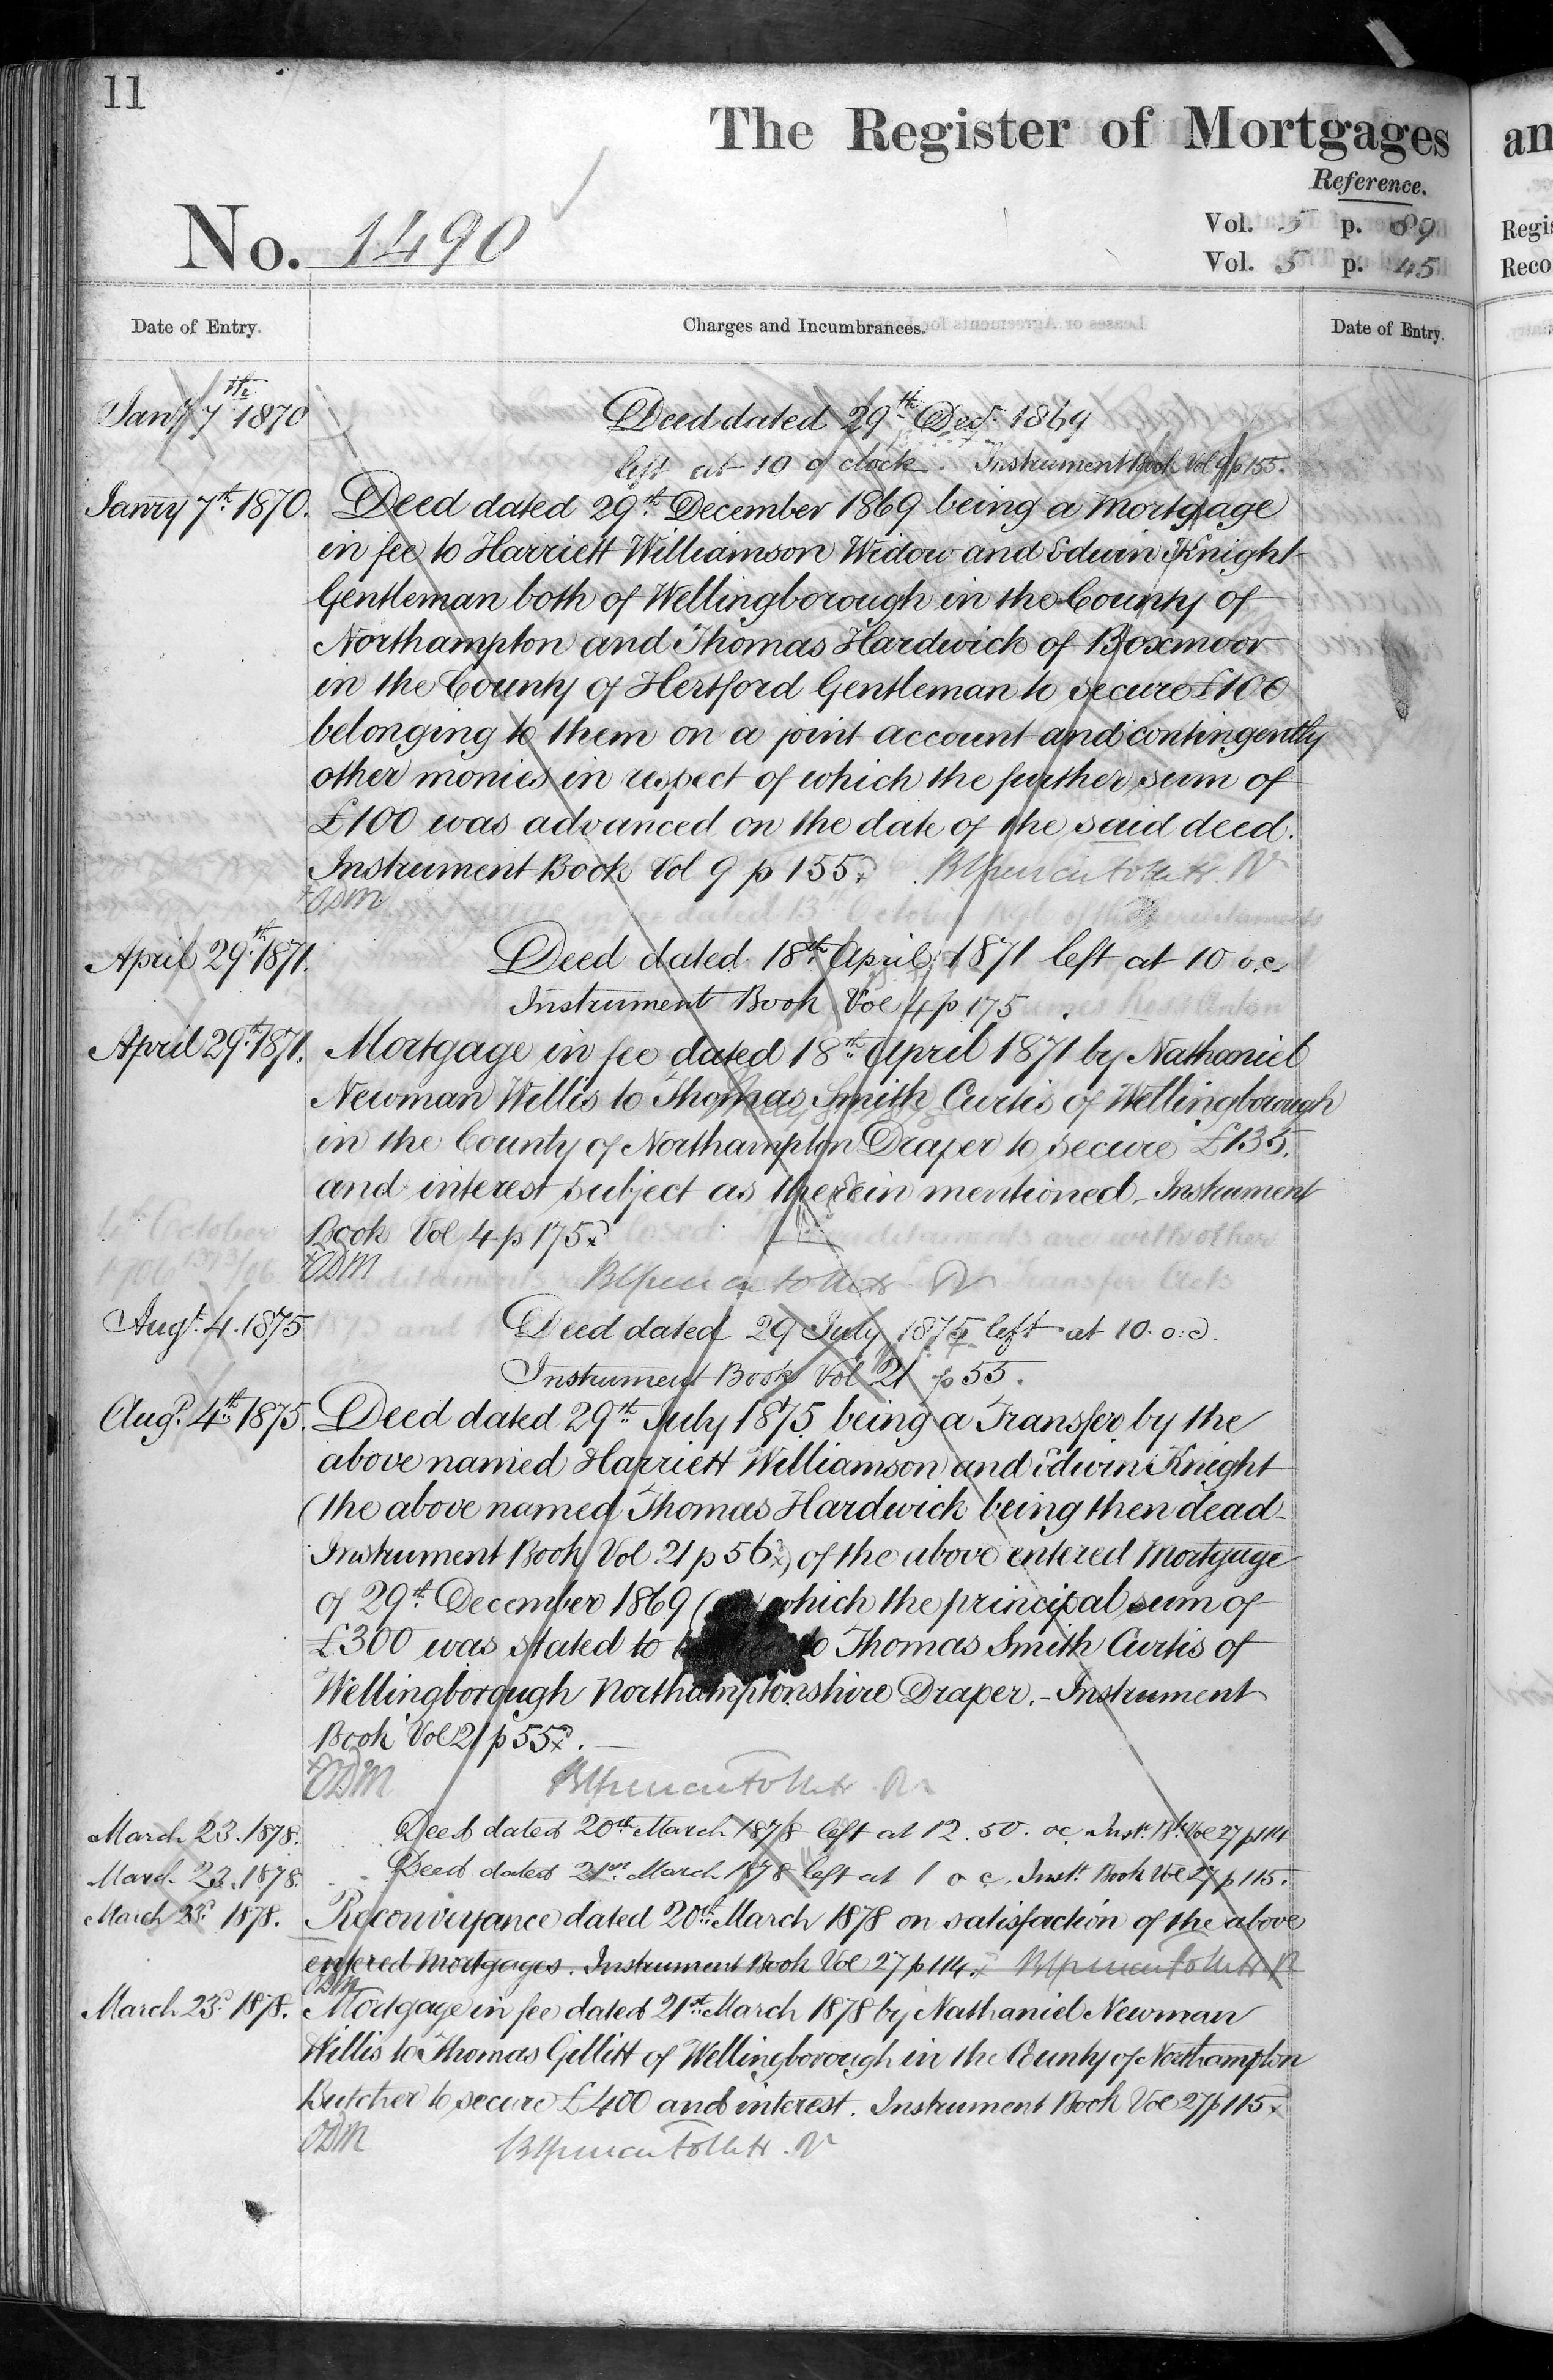 11
The Register of Mortgages
an
Reference.
No. 1490
Vol. 5 p. 89
Regis
Vol. 5 p. 45
Reco
Date of Entry.
Charges and Incumbrances.
Date of Entry.
Jany 7th 1870
Deed dated 29th Decr 1869
left at 10 o'clock. Instrument Book Vol 9 p 155.
Janry 7th 1870.
Deed dated 29th December 1869 being a Mortgage
in fee to Harriett Williamson Widow and Edwin Knight
Gentleman both of Wellingborough in the County of
Northampton and Thomas Hardwick of Boxmoor
in the County of Hertford Gentleman to secure £100
belonging to them on a joint account and contingently
other monies in respect of which the further sum of
£100 was advanced on the date of the said deed.
Instrument Book Vol 9 p 155.
ODM
April 29th 1871.
Deed dated 18th April 1871 left at 10 o.c
Instrument Book Vol 4 p 175
April 29th 1871.
Mortgage in fee dated 18th April 1871 by Nathaniel
Newman Willis to Thomas Smith Curtis of Wellingborough
in the County of Northampton Draper to secure £135.
and interest subject as therein mentioned. Instrument
Book Vol 4 p 175.
ODM
Augt. 4. 1875
Deed dated 29 July 1875 left at 10. o.c.
Instrument Book Vol 21 p 55.
Augt. 4th 1875.
Deed dated 29th July 1875 being a Transfer by the
above named Harriett Williamson and Edwin Knight
(the above named Thomas Hardwick being then dead-
Instrument Book Vol. 21 p 56.) of the above entered Mortgage
of 29th December 1869 ( which the principal sum of
£300 was stated to to Thomas Smith Curtis of
Wellingborough Northamptonshire Draper. - Instrument
Book Vol 21 p 55.
ODM
March 23. 1878.
Deed dated 20th March 1878 left at 12. 50. oc. Inst. Bk. Vol 27 p 114
March 23. 1878.
Deed dated 21st March 1878 left at 1 o c. Inst. Book Vol 27 p 115.
March 23d 1878.
Reconveyance dated 20th March 1878 on satisfaction of the above
entered Mortgages. Instrument Book Vol 27 p 114.
ODM
March 23d 1878.
Mortgage in fee dated 21st March 1878 by Nathaniel Newman
Willis to Thomas Gillitt of Wellingborough in the County of Northampton
Butcher to secure £400 and interest. Instrument Book Vol 27 p 115
ODM